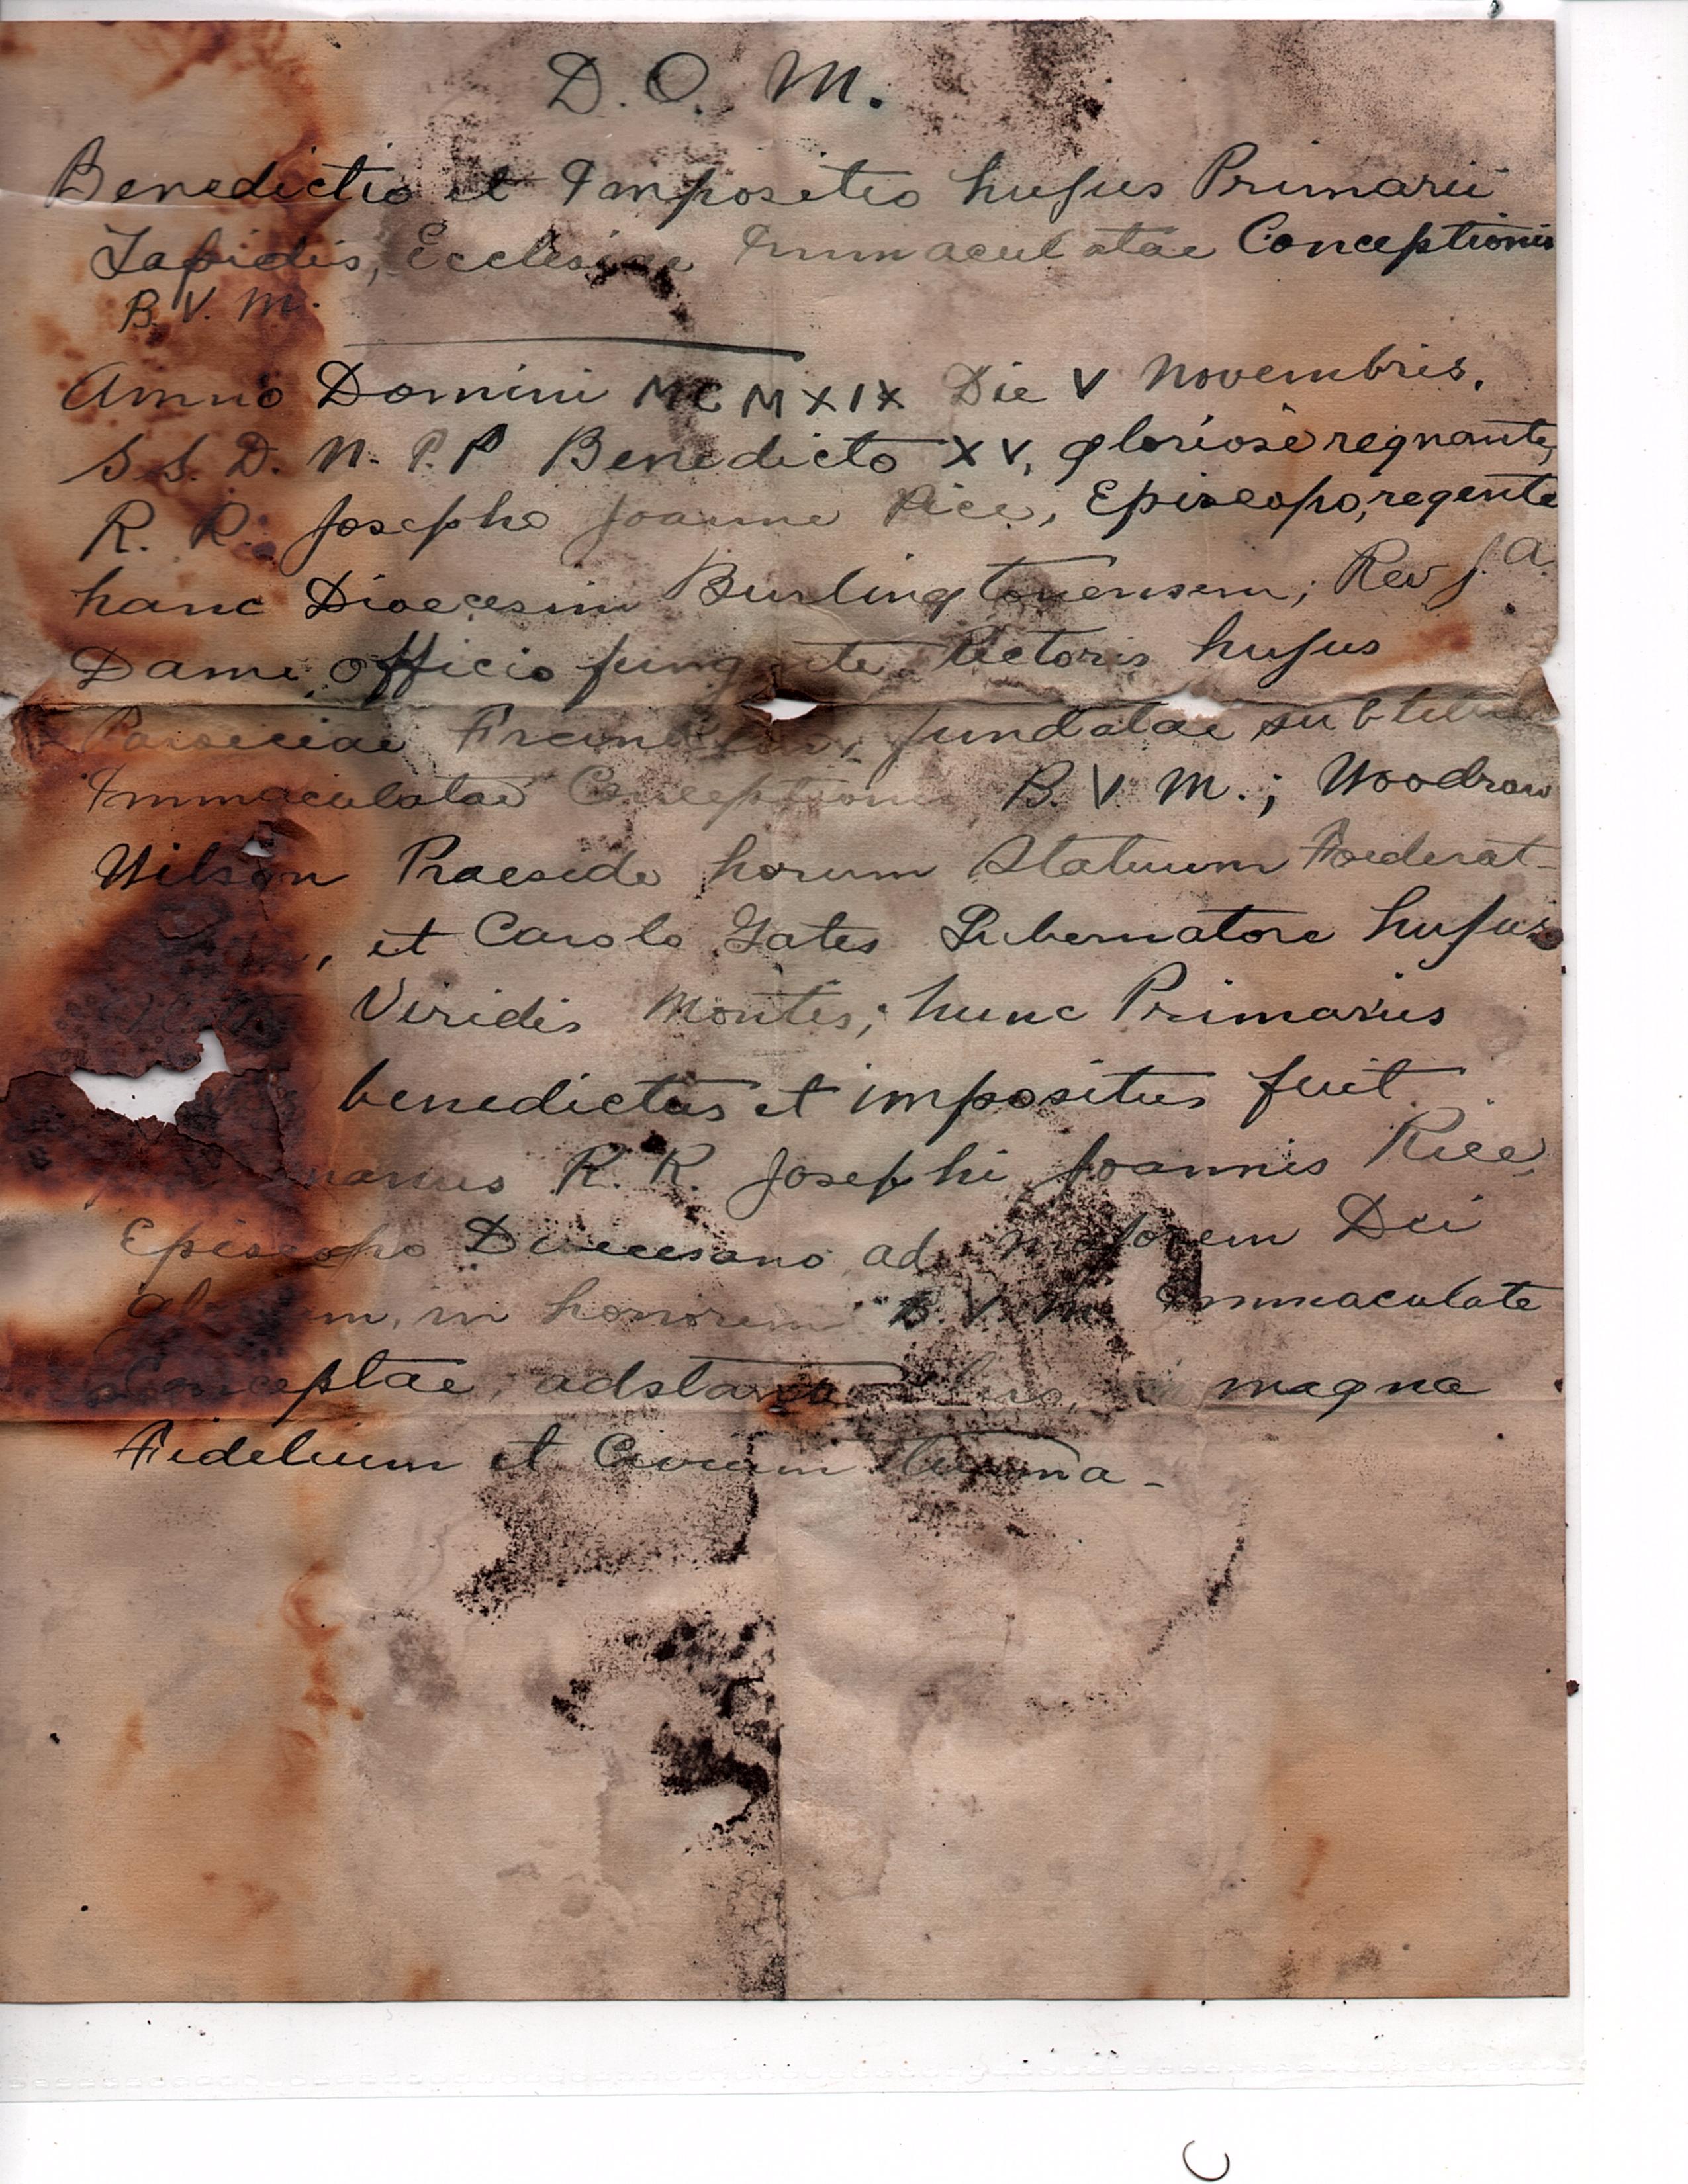 D. O. M.
Benedictio et Impositio hujus Primarii
Lapidis, Ecclesiae Immaculatae Conceptionis
B. V. M.
Anno Domini MCMXIX Die V Novembris,
S. S. D. N. P. P Benedicto XV, gloriose regnante,
R. R. Josepho Joanne Rice, Episcopo, regente
hanc Dioecesim Burlingtonensem; Rev J. A.
Dame officio fungente Rectoris hujus
Paroeciae fundatae sub
Immaculatae Conceptionis B. V. M.; Woodrow
Wilson Praeside horum Statuum Foederat-
, et Carolo Gates Gubernatore hujus
Viridis Montis; hunc Primarius
benedictus et impositus fuit
manus R. R. Josephi Joannis Rice
Episcopo Dioecesano ad majorem Dei
in honorem B. V. M. Immaculate
Conceptae, magna
Fidelium et Civium turma-